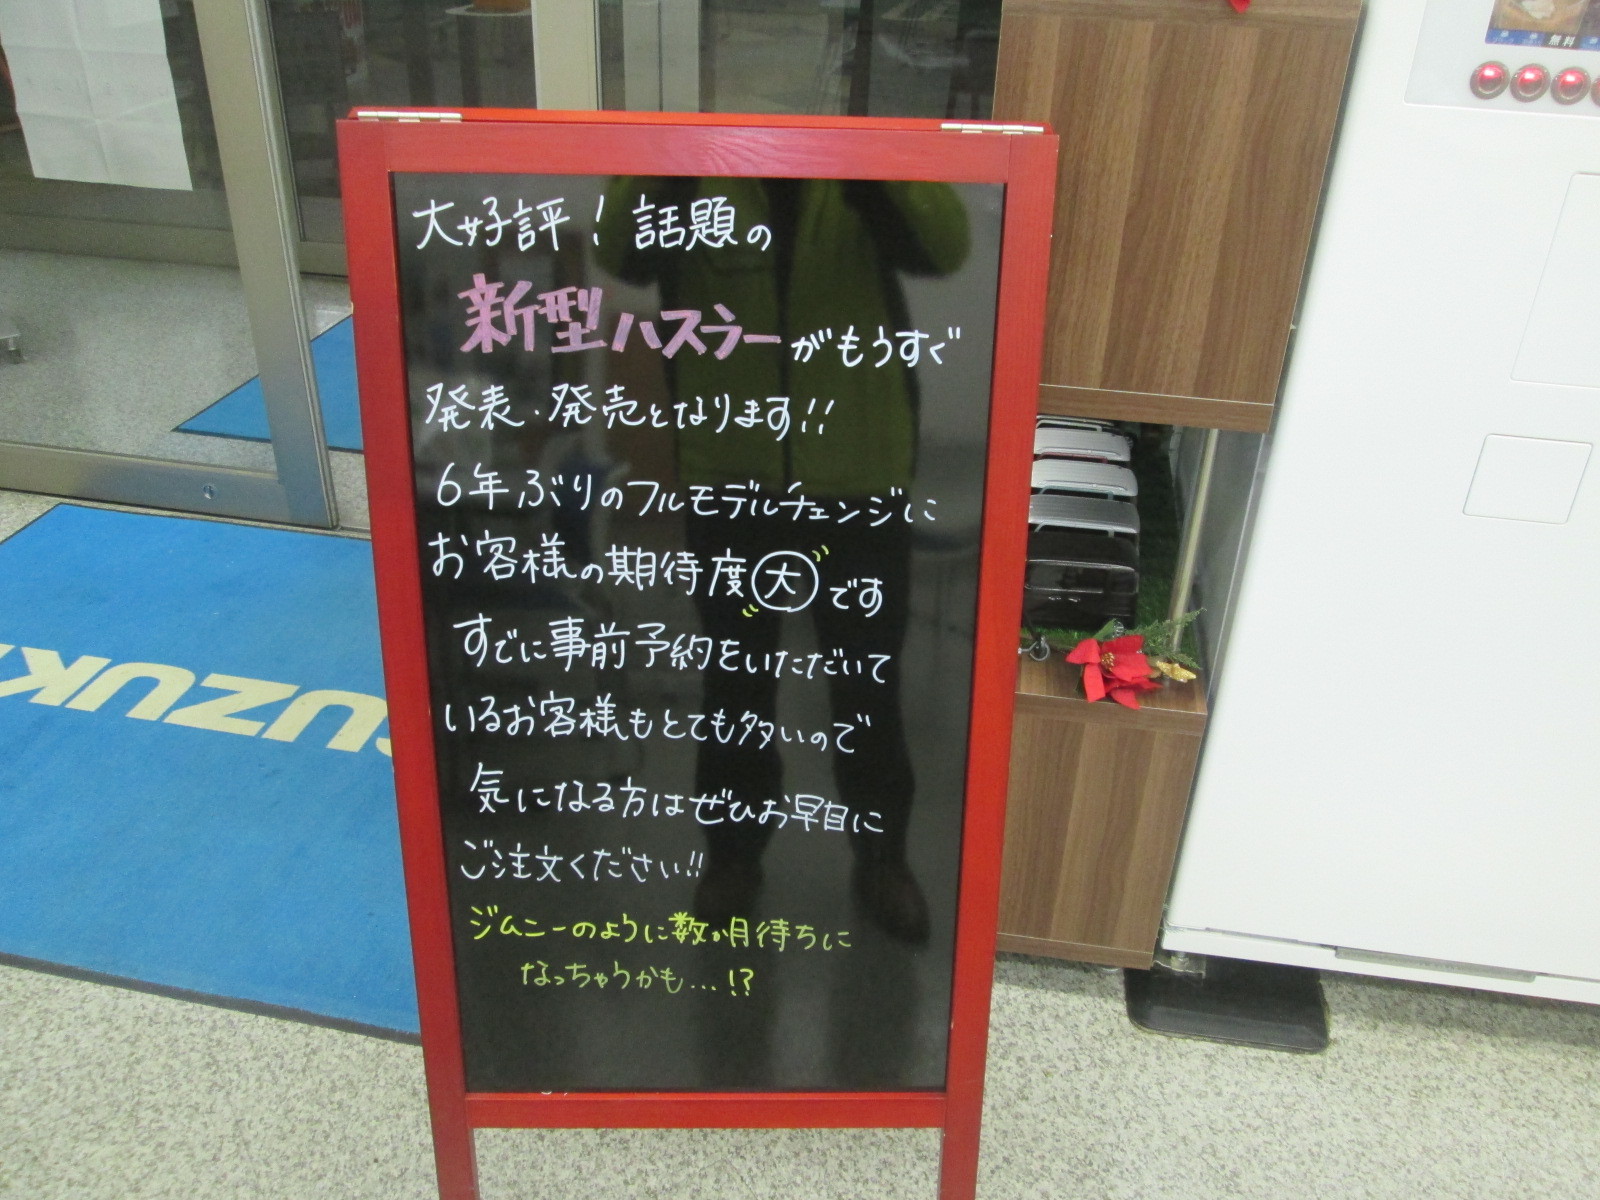 大好評！話題の
新型ハスラーがもうすぐ
発表・発売となります!!
6年ぶりのフルモデルチェンジに
お客様の期待度大です
すでに事前予約をいただいて
いるお客様もとても多いので
気になる方はぜひお早目に
ご注文ください!!
ジムニーのように数か月待ちに
なっちゃうかも…!?
SUZUKI
無料